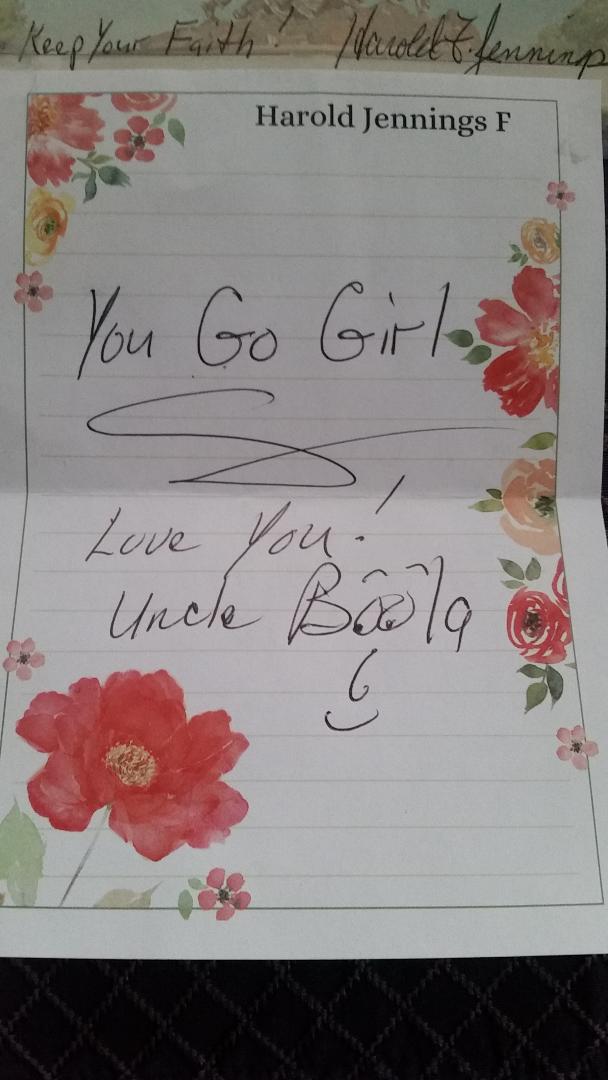 Keep Your Faith! Harold F. Jennings
Harold Jennings F
You Go Girl
Love You!
Uncle Boola